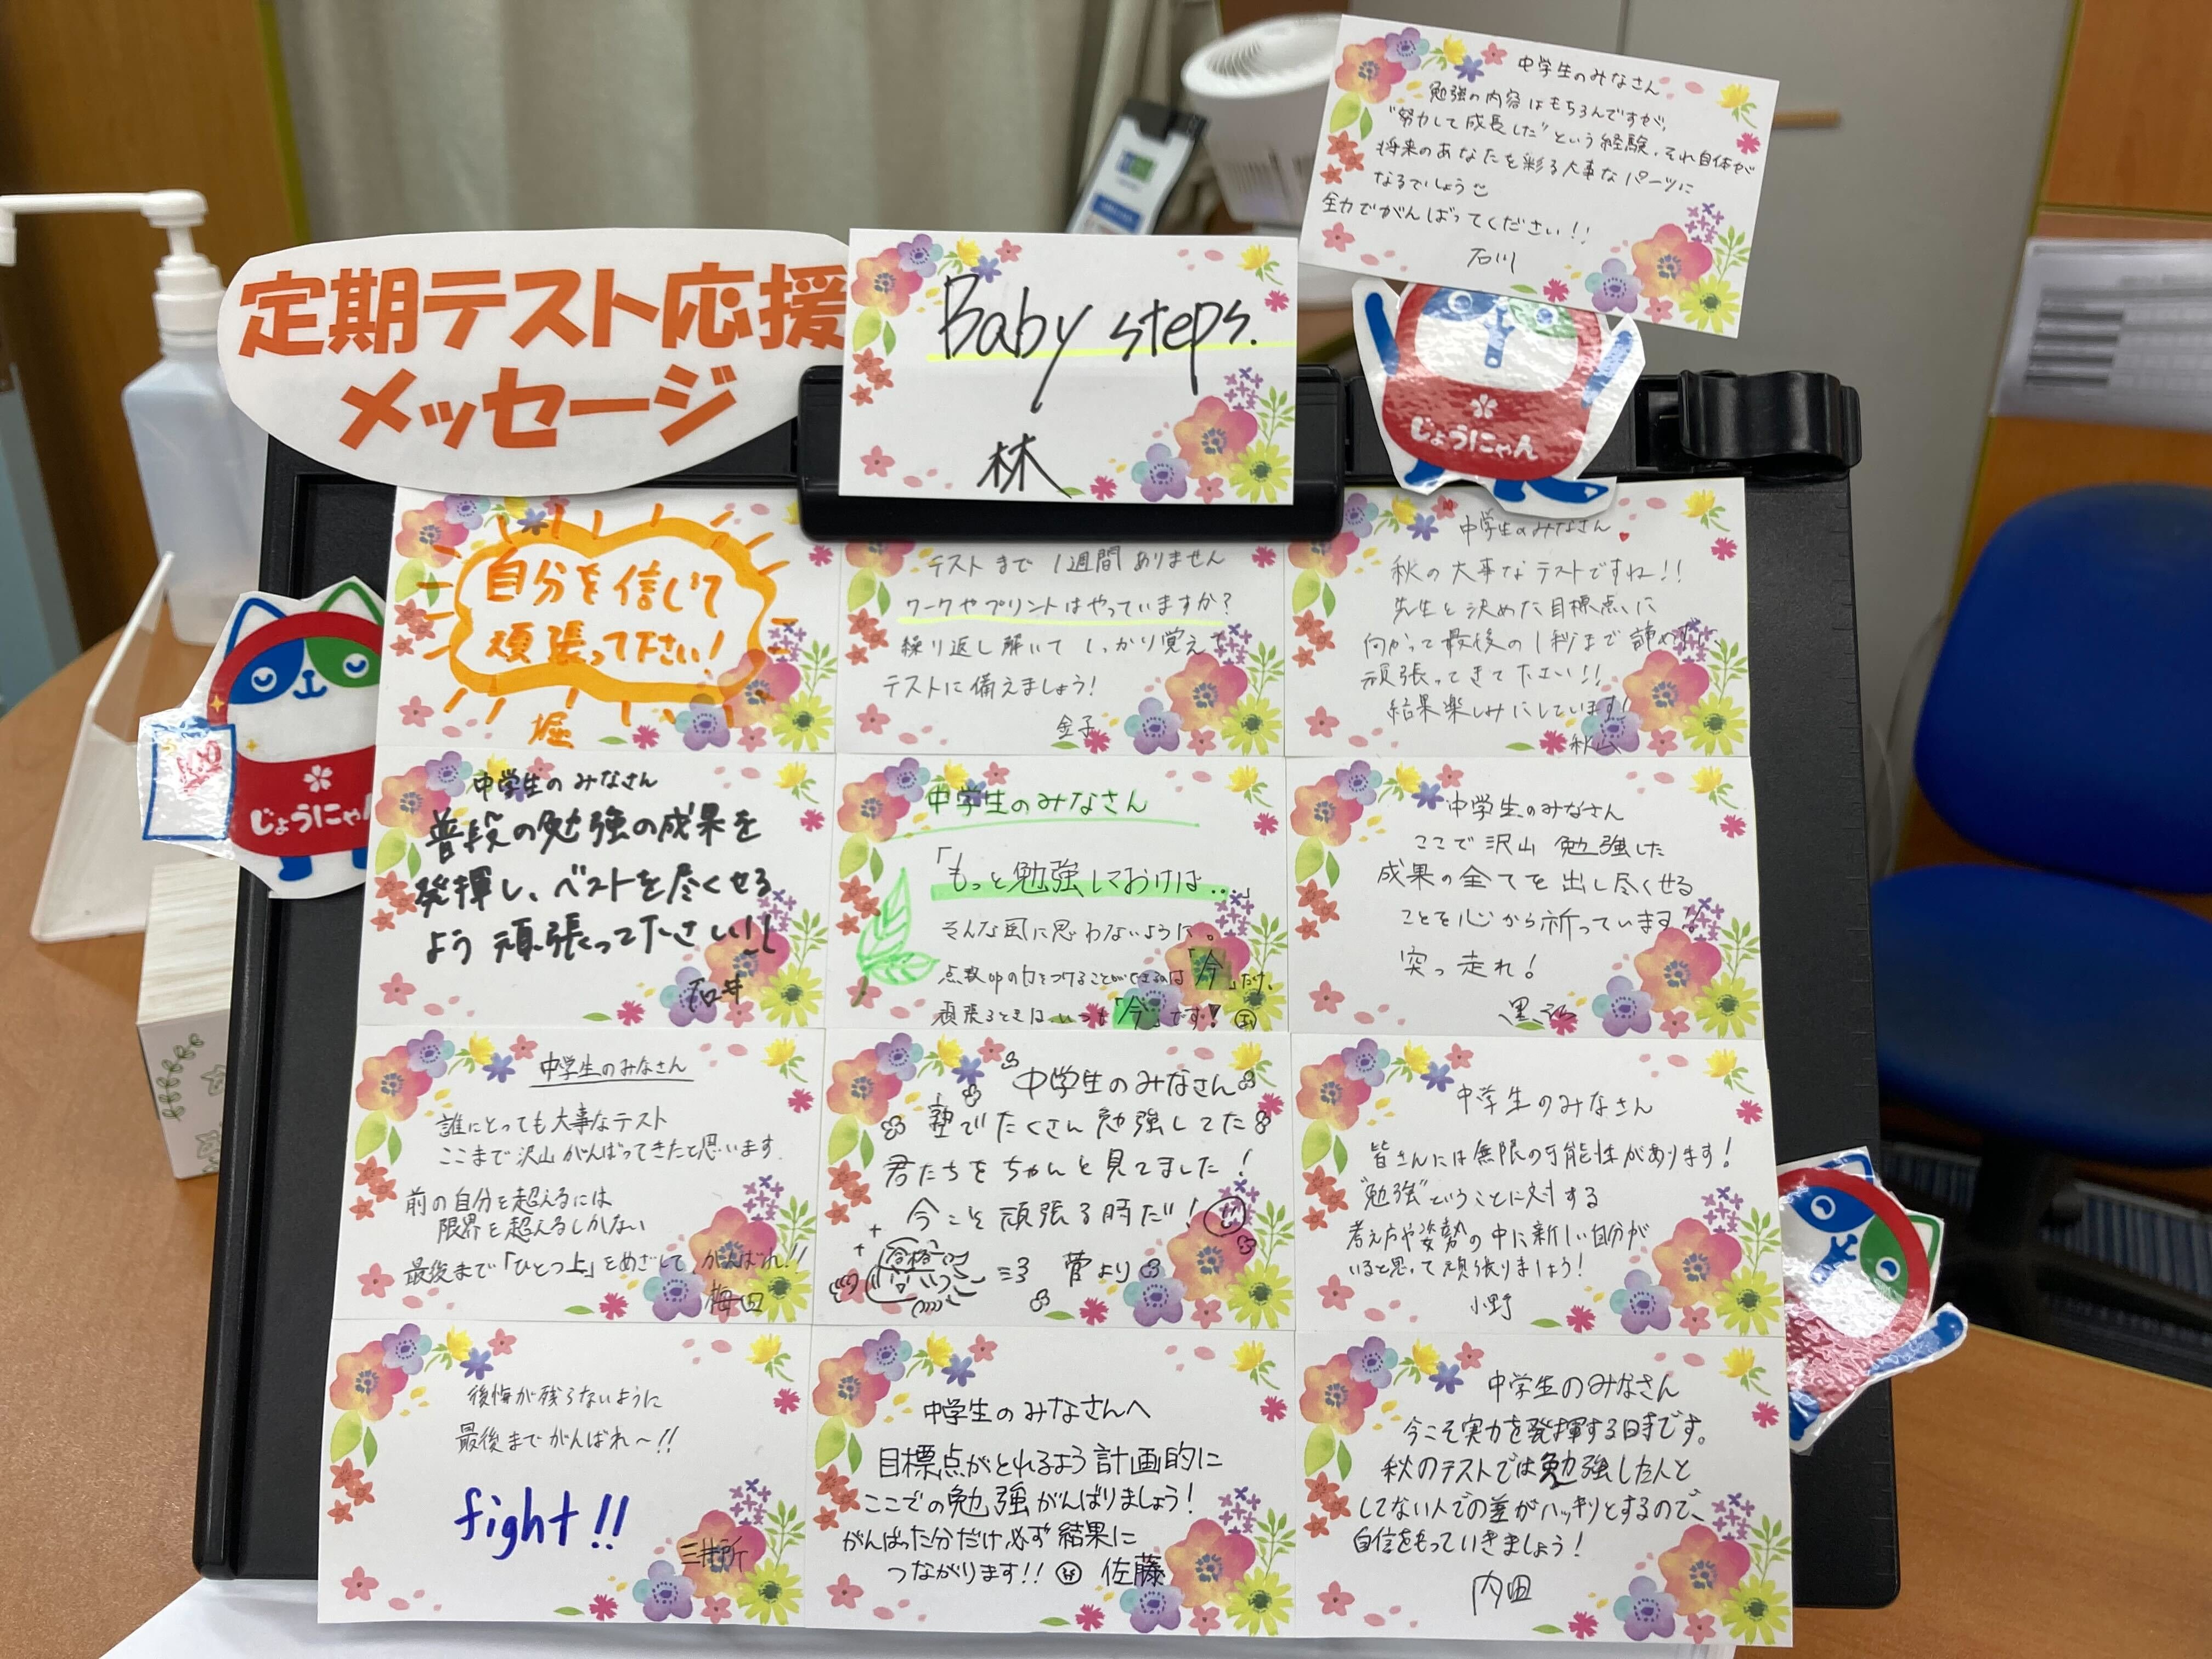 定期テスト応援
メッセージ
Baby steps.
林
中学生のみなさん
勉強の内容はもちろんですが、
"努力して成長した"という経験、それ自体が
将来のあなたを彩る大事なパーツに
なるでしょう
全力でがんばってください!!
石川
じょうにゃん
自分を信じて
頑張って下さい!
堀
テストまで1週間ありません
ワークやプリントはやっていますか?
繰り返し解いてしっかり覚えて
テストに備えましょう!
金子
中学生のみなさん
秋の大事なテストですね!!
先生と決めた目標点に
向かって最後の1秒まで諦めず、
頑張ってきて下さい!!
結果楽しみにしています!
秋山
じょうにゃん
中学生のみなさん
普段の勉強の成果を
発揮し、ベストを尽くせる
よう頑張って下さい!!
石井
中学生のみなさん
「もっと勉強しておけば...」
そんな風に思わないように。
点数upの力をつけることができるのは「今」だけ、
頑張るときはいつも「今」です!
中学生のみなさん
ここで沢山勉強した
成果の全てを出し尽くせる
ことを心から祈っています!
突っ走れ!
黒沼
中学生のみなさん
誰にとっても大事なテスト
ここまで沢山がんばってきたと思います.
前の自分を超えるには
限界を超えるしかない
最後まで「ひとつ上」をめざして、がんばれ!!
梅田
中学生のみなさん
塾でたくさん勉強してた
君たちをちゃんと見てました!
今こそ頑張る時だ!
合格
菅より
中学生のみなさん
皆さんには無限の可能性があります!
"勉強"ということに対する
考え方や姿勢の中に新しい自分が
いると思って頑張りましょう!
小野
後悔が残らないように
最後までがんばれ〜!!
fight!!
三井所
中学生のみなさんへ
目標点がとれるよう計画的に
ここでの勉強がんばりましょう!
がんばった分だけ必ず結果に
つながります!! 佐藤
中学生のみなさん
今こそ実力を発揮する時です。
秋のテストでは勉強した人と
してない人での差がハッキリとするので、
自信をもっていきましょう!
内田